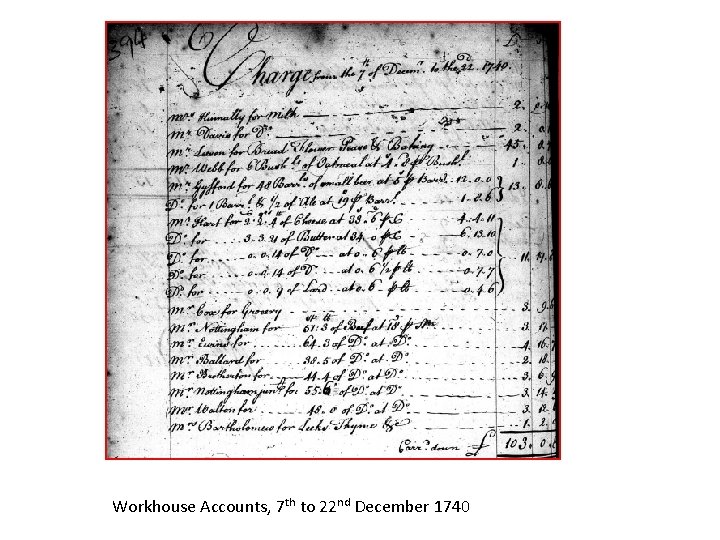 394
Charge from the 7th of Decemr. to the 22. 1740.
for Milk 2.
Mr. Davis for Do. 2.
Mr. for Bread Flower Pease & Baking 45.
Mr. Webb for 6 Bushls of Oatmeal at 4. 0 p Bushl. 1.
Mr. Gyfford for 48 Barrls. of small beer at 5 p Barrl. 12. 0. 0
Do. for 1 Barrl. & 1/2 of Ale at 19 p Barrl. 1. 8. 6 13. 8. 6
Mr. Hart for 2. 2. 4 of Cheese at 33. 6 p C 4. 4. 11
Do. for 3. 3. 21 of Butter at 34. 0 p C 6. 13. 10
Do. for 0. 0. 14 of Do. at 0. 6 p lb 0. 7. 0
Do. for 0. 0. 14 of D at 0. 6 1/2 p lb 0. 7. 7
Do. for 0. 0. 9 of Lard at 0. 6 p lb 0. 4. 6
Mr. Cox for Grocery 3.
Mr. Nottingham for 61: 3 of Beef at 18 p 3.
Mr. for 64. 3 of Do. at Do. 4.
Mr. Ballard for 38. 5 of Do. at Do. 2.
Mr. Brotherton for 44. 4 of Do. at Do. 3. 6.
Mr. Nottingham junr. for 55. 6 of Do. at Do. 3. 14.
Mr. Walton for 48. 0 of Do. at Do. 3.
Mr. Bartholomew for Leeks Thyme &c 1. 2.
Carrd. down £ 103. 0. 6
Workhouse Accounts, 7th to 22nd December 1740